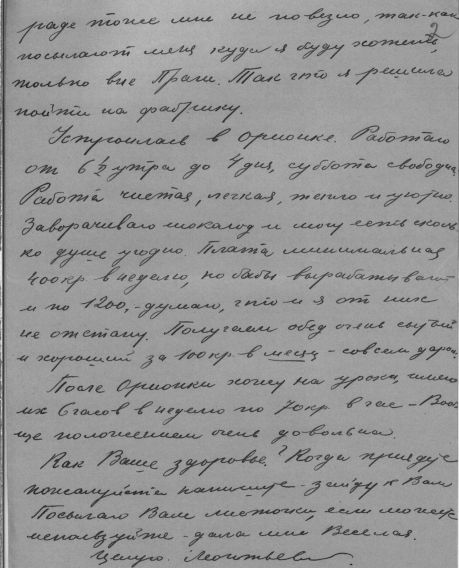 раде тоже мне не повезло, так-как
2
посылают меня куда я буду хотеть
только вне Праги. Так что я решила
пойти на фабрику.
Устроилась в Орионке. Работаю
от 6 ½ утра до 4 дня, суббота свободна.
Работа чистая, легкая, тепло и уютно.
Заворачиваю шоколад и могу есть сколь
ко душе угодно. Плата минимальная
400кр. в неделю, но бабы вырабатывают
и по 1200,- думаю, что и я от них
не отстану. Получаем обед очень сытный
и хороший за 100кр в месяц - совсем даром.
После Орионки хожу на уроки, имею
их 6 часов в неделю по 70кр в час - Вооб
ще положением очень довольна.
Как Ваше здоровье? Когда приедете
пожалуйста напишите - зайду к Вам
Посылаю Вам листочки, если можете
используйте - дала мне Веселая.
Целую. Леонтьева